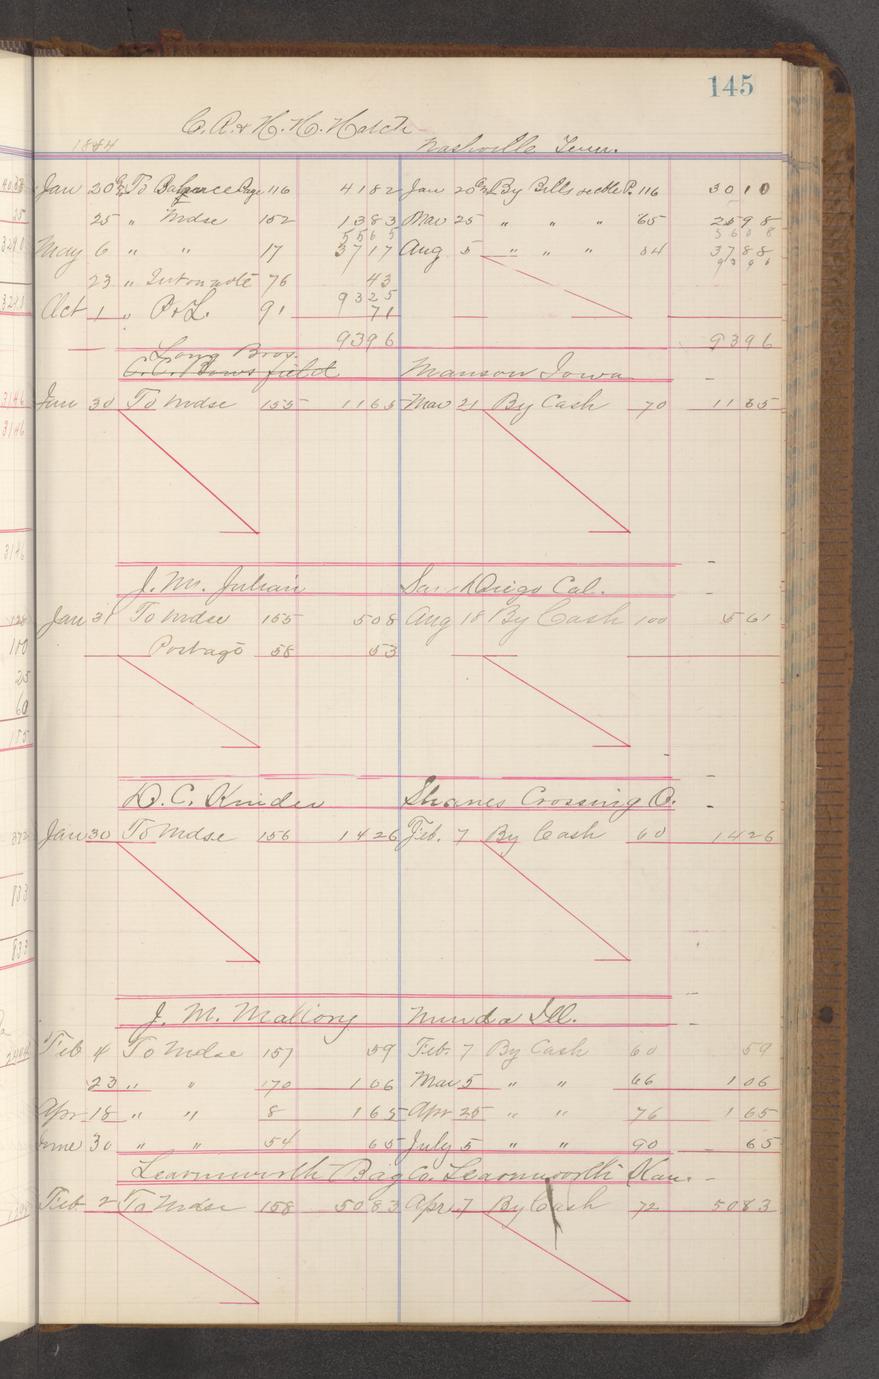 145
C. A. & H. H. Hatch
1884 Nashville Tenn.
Jan 20 To Balance Page 116 4182 Jan 20 By Bills 116 3010
25 " Mdse 152 1383 Mar 25 " " " 65 2598
5565 5608
May 6 " " 17 3717 Aug 5 " " " 84 3788
9396
23 " Int on note 76 43
9325
Oct 1 " P & L. 91 71
9396 9396
Long Bros.
C. C. Bowsfield Manson Iowa
Jan 30 To Mdse 155 1165 Mar 21 By Cash 70 1165
J. M. Julian San Diego Cal.
Jan 31 To Mdse 155 508 Aug 18 By Cash 100 561
Postage 58 53
D. C. Kinder Shanes Crossing O.
Jan 30 To Mdse 156 1426 Feb. 7 By Cash 60 1426
J. M. Mallory Nunda Ill.
Feb 4 To Mdse 157 59 Feb. 7 By Cash 60 59
23 " " 170 106 Mar 5 " " 66 106
Apr 18 " " 8 165 Apr 25 " " 76 165
June 30 " " 54 65 July 5 " " 90 65
Leavnworth Bag Co. Leavnworth Kan.
Feb 2 To Mdse 158 5083 Apr 7 By Cash 72 5083